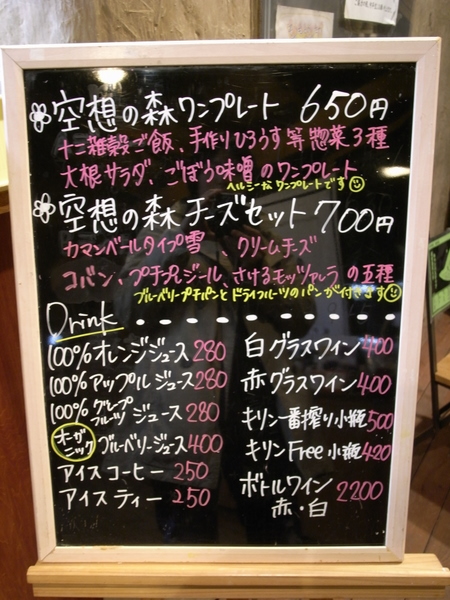 空想の森ワンプレート 650円
十二雑穀ご飯、手作りひろうす等惣菜3種
大根サラダ、ごぼう味噌のワンプレート
ヘルシーなワンプレートです
空想の森チーズセット 700円
カマンベールタイプ雪、クリームチーズ
コバン、プチプレジール、さけるモッツァレラの五種
ブルーベリープチパンとドライフルーツのパンが付きます
Drink
100% オレンジジュース 280
100% アップルジュース 280
100% グレープフルーツジュース 280
オーガニック ブルーベリージュース 400
アイスコーヒー 250
アイスティー 250
白グラスワイン 400
赤グラスワイン 400
キリン一番搾り小瓶 500
キリンFree小瓶 420
ボトルワイン 2200
赤・白